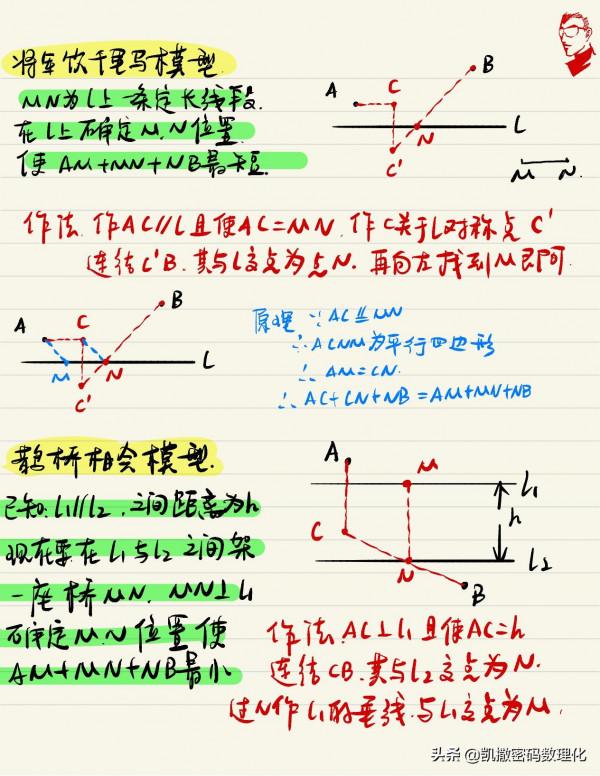 将军饮千里马模型.
MN为l上一条定长线段.
在l上确定M,N位置
使 AM+MN+NB最短.
A
C
B
N
L
C'
M N
作法. 作AC∥l且使AC=MN. 作C关于l对称点C'
连结C'B. 其与l交点为点N. 再向左找到M即可.
A
C
B
M
N
L
C'
原理 ∵AC∥MN
∴ACNM为平行四边形
∴AM=CN.
∴AC+CN+NB=AM+MN+NB
鹊桥相会模型.
已知l1∥l2,之间距离为h
现在要在l1与l2之间架
一座桥MN, MN⊥l1
确定M,N位置使
AM+MN+NB最小
A
M
l1
h
C
N
l2
B
作法.AC⊥l1且使AC=h
连结CB.其与l2交点为N.
过N作l1的垂线.与l1交点为M.
头条 @凯撒密码数理化